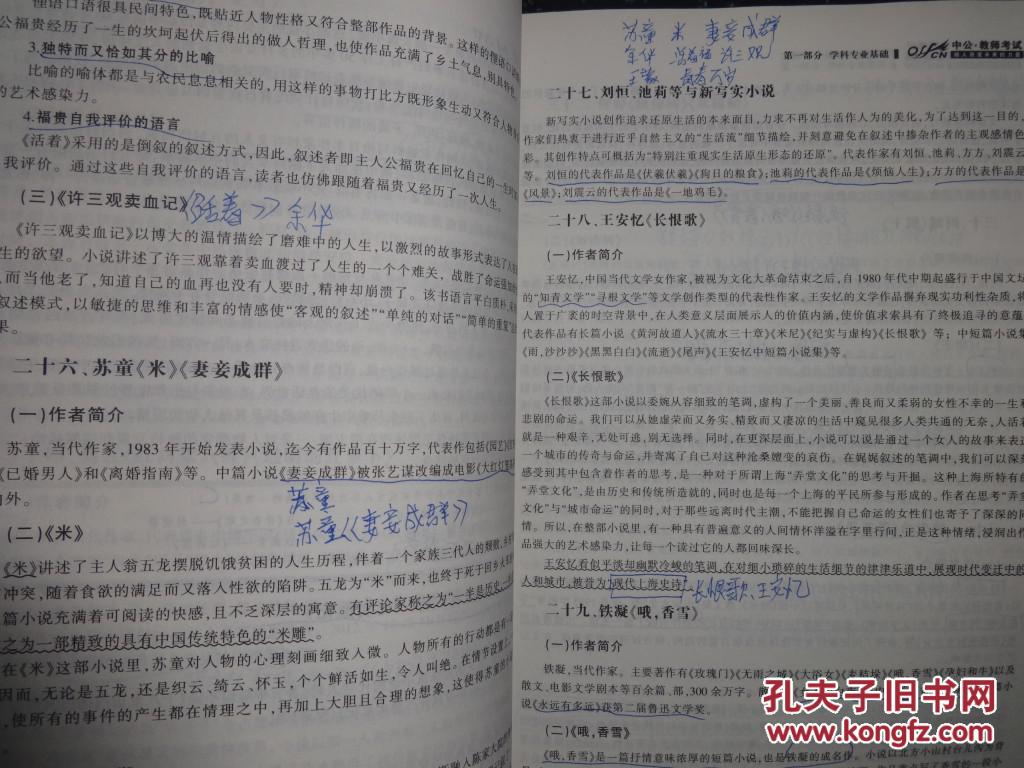 俚语口语很具民间特色,既贴近人物性格又符合整部作品的背景。这样的俚语口
公福贵经历了一生的坎坷起伏后得出的做人哲理,也使作品充满了乡土气息,别具特色。
3.独特而又恰如其分的比喻
比喻的喻体都是与农民息息相关的,用这样的事物打比方既形象生动又符合人物
的艺术感染力。
4.福贵自我评价的语言
《活着》采用的是倒叙的叙述方式,因此,叙述者即主人公福贵在回忆自己的一生时
我评价。通过这些自我评价的语言,读者也仿佛跟随着福贵又经历了一次人生。
(三)《许三观卖血记》
《活着》余华
《许三观卖血记》以博大的温情描绘了磨难中的人生,以激烈的故事形式表达了人
生的欲望。小说讲述了许三观靠着卖血渡过了人生的一个个难关,战胜了命运强加
,而当他老了,知道自己的血再也没有人要时,精神却崩溃了。该书语言平白质朴,
叙述模式,以敏捷的思维和丰富的情感使“客观的叙述”“单纯的对话”“简单的重复”
果。
二十六、苏童《米》《妻妾成群》
(一)作者简介
苏童,当代作家,1983年开始发表小说,迄今有作品百十万字,代表作包括《园艺》
《已婚男人》和《离婚指南》等。中篇小说《妻妾成群》被张艺谋改编成电影《大红灯笼
内外。
苏童
苏童《妻妾成群》
(二)《米》
《米》讲述了主人翁五龙摆脱饥饿贫困的人生历程,伴着一个家族三代人的颓败,
冲突,随着食欲的满足而又落入性欲的陷阱。五龙为“米”而来,也终于死于回乡
篇小说充满着可阅读的快感,且不乏深层的寓意。有评论家称之为“一半是历史
之为一部精致的具有中国传统特色的“米雕”。
在《米》这部小说里,苏童对人物的心理刻画细致入微。人物所有的行动都是有
因而,无论是五龙,还是织云、绮云、怀玉,个个鲜活如生,令人叫绝。在情节设置上
,使所有的事件的产生都在情理之中,再加上大胆且合理的想象,这使得苏童的小
苏童 米 妻妾成群
余华 许三观
第一部分 学科专业基础
中公·教师考试
二十七、刘恒、池莉等与新写实小说
新写实小说创作追求还原生活的本来面目,力求不再对生活作人为的美化,为了达到这一目的,
作家们热衷于进行近乎自然主义的“生活流”细节描绘,并刻意避免在叙述中掺杂作者的主观感情色
彩。其创作特点可概括为“特别注重现实生活原生形态的还原”。代表作家有刘恒、池莉、方方、刘震云
等。刘恒的代表作品是《伏羲伏羲》《狗日的粮食》;池莉的代表作品是《烦恼人生》;方方的代表作品是
《风景》;刘震云的代表作品是《一地鸡毛》。
二十八、王安忆《长恨歌》
(一)作者简介
王安忆,中国当代文学女作家,被视为文化大革命结束之后,自1980年代中期起盛行于中国文坛
的“知青文学”“寻根文学”等文学创作类型的代表性作家。王安忆的文学作品摒弃现实功利性杂质,将
人置于广袤的时空背景中,在人类意义层面展示人的价值内涵,使价值求索具有了终极追寻的意蕴
代表作品有长篇小说《黄河故道人》《流水三十章》《米尼》《纪实与虚构》《长恨歌》等;中短篇小说集
《雨,沙沙沙》《黑黑白白》《流逝》《尾声》《王安忆中短篇小说集》等。
(二)《长恨歌》
《长恨歌》这部小说以委婉从容细致的笔调,虚构了一个美丽,善良而又柔弱的女性不幸的一生和
悲剧的命运。我们可以从她虚荣而又务实、精致而又凄凉的生活中窥见很多人类共通的无奈,人活着
就是一种艰辛,无处可逃,别无选择。同时,在更深层面上,小说可以说是通过一个女人的故事来表达
一个城市的传奇与命运,并寄寓了自己对这种沧桑嬗变的哀伤。在娓娓叙述的笔调中,我们可以深刻
感受到其中包含着作者的思考,是一种对于所谓上海“弄堂文化”的思考与开掘。这种上海所特有的
“弄堂文化”,是由历史和传统所造就的,同时也是每一个上海的平民所参与形成的。作者在思考“弄堂
文化”与“城市命运”的同时,对于那些远离时代主潮,不能把握自己命运的女性们也寄予了深深的同
情。所以,在整部小说里,有一种具有普遍意义的人间情怀洋溢在字里行间,正是这种情绪,浸润出作
品强大的艺术感染力,让每一个读过它的人都回味深长。
王安忆看似平淡却幽默冷峻的笔调,在对细小琐碎的生活细节的津津乐道中,展现时代变迁中的
人和城市,被誉为“现代上海史诗”。
长恨歌、王安忆
二十九、铁凝《哦,香雪》
(一)作者简介
铁凝,当代作家。主要著作有《玫瑰门》《无雨之城》《大浴女》《麦秸垛》《哦,香雪》《孕妇和牛》以及
散文、电影文学剧本等百余篇、部,300余万字。
说《永远有多远》获第二届鲁迅文学奖。
(二)《哦,香雪》
《哦,香雪》是一篇抒情意味浓厚的短篇小说,也是铁凝的成名作。小说以北方小山村台儿沟为背
孔夫子旧书网